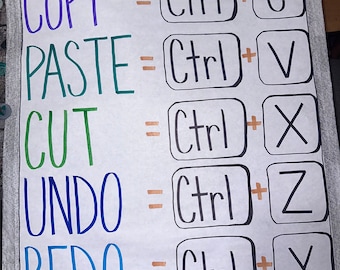 COPY = Ctrl + C
PASTE = Ctrl + V
CUT = Ctrl + X
UNDO = Ctrl + Z
REDO = Ctrl + Y